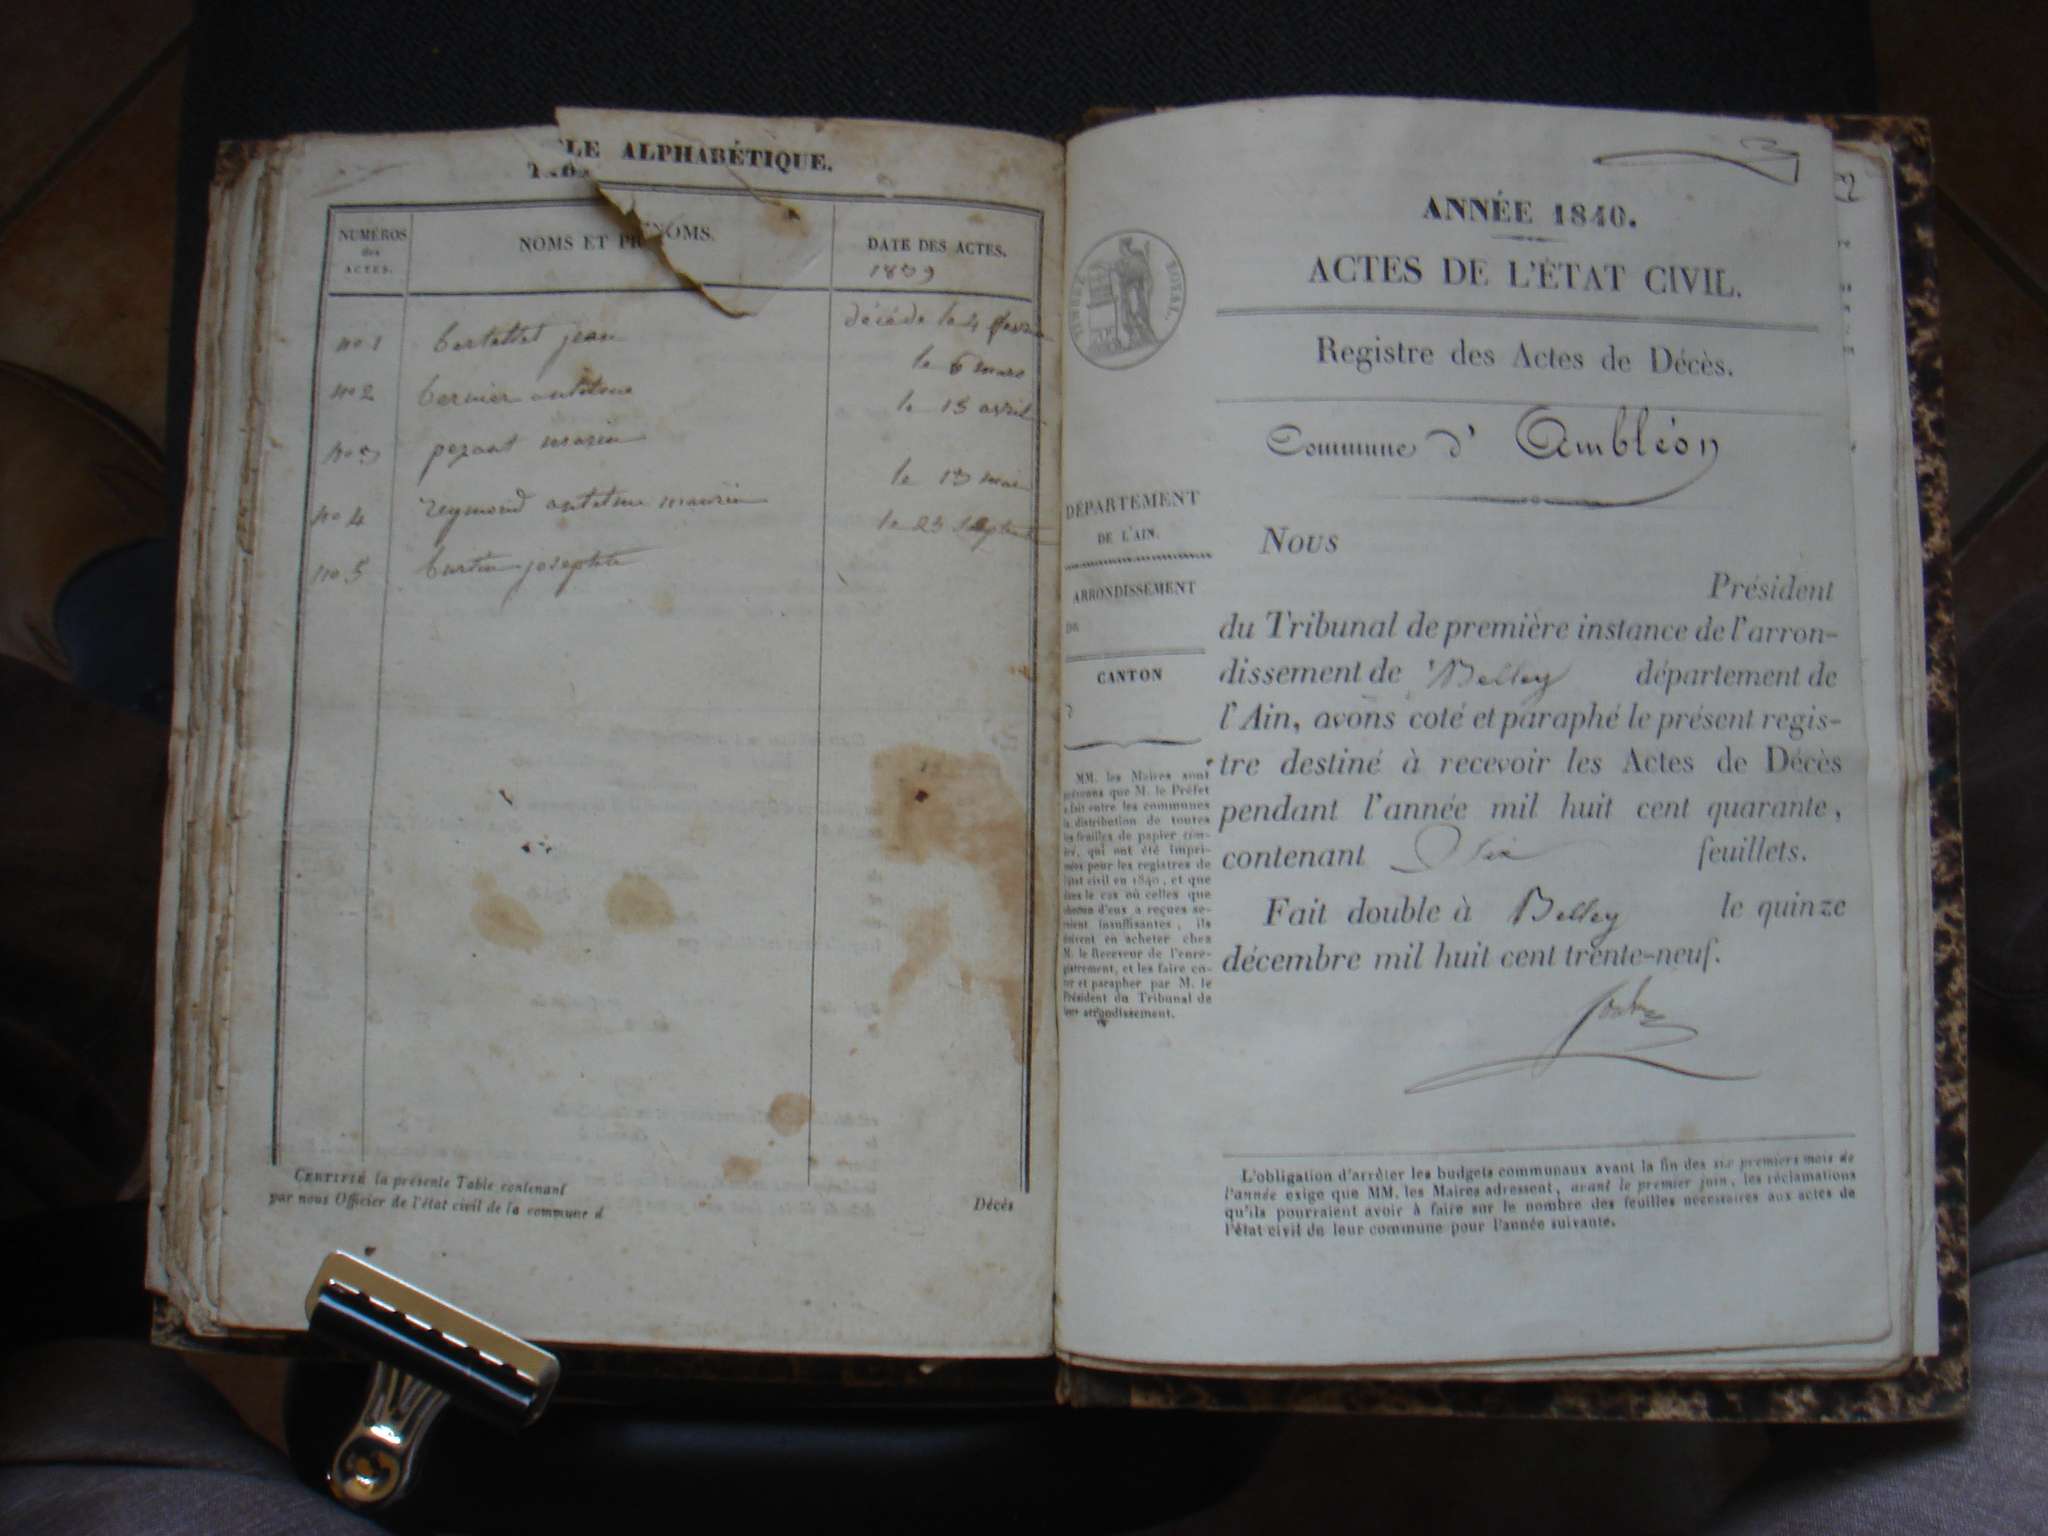 LE ALPHABÉTIQUE.
NUMÉROS
des
ACTES.
NOMS ET PRÉNOMS.
DATE DES ACTES.
1839
no 1 bertettet jean décédé le 4 fevrie
no 2 bernier antelme le 6 mars
no 3 pezant marie le 15 avril
no 4 reymond antelme marie le 13 mai
no 5 burtin josephte le 23 septembre
CERTIFIÉ la présente Table contenant
par nous Officier de l'état civil de la commune d
Décès
ANNÉE 1840.
ACTES DE L'ÉTAT CIVIL.
TIMBRE ROYAL.
Registre des Actes de Décès.
Commune d' Ambléon
DÉPARTEMENT
DE L'AIN.
ARRONDISSEMENT
DE
CANTON
d
MM. les Maires sont
prévenus que M. le Préfet
a fait entre les communes
la distribution de toutes
les feuilles de papier tim-
bré, qui ont été impri-
mées pour les registres de
l'état civil en 1840, et que
dans le cas où celles que
chacun d'eux a reçues se-
raient insuffisantes, ils
doivent en acheter chez
M. le Receveur de l'enre-
gistrement, et les faire co-
ter et parapher par M. le
Président du Tribunal de
leur arrondissement.
Nous
Président
du Tribunal de première instance de l'arron-
dissement de Belley département de
l'Ain, avons coté et paraphé le présent regis-
tre destiné à recevoir les Actes de Décès
pendant l'année mil huit cent quarante,
contenant Six feuillets.
Fait double à Belley le quinze
décembre mil huit cent trente-neuf.
L'obligation d'arrêter les budgets communaux avant la fin des six premiers mois de
l'année exige que MM. les Maires adressent, avant le premier juin, les réclamations
qu'ils pourraient avoir à faire sur le nombre des feuilles nécessaires aux actes de
l'état civil de leur commune pour l'année suivante.